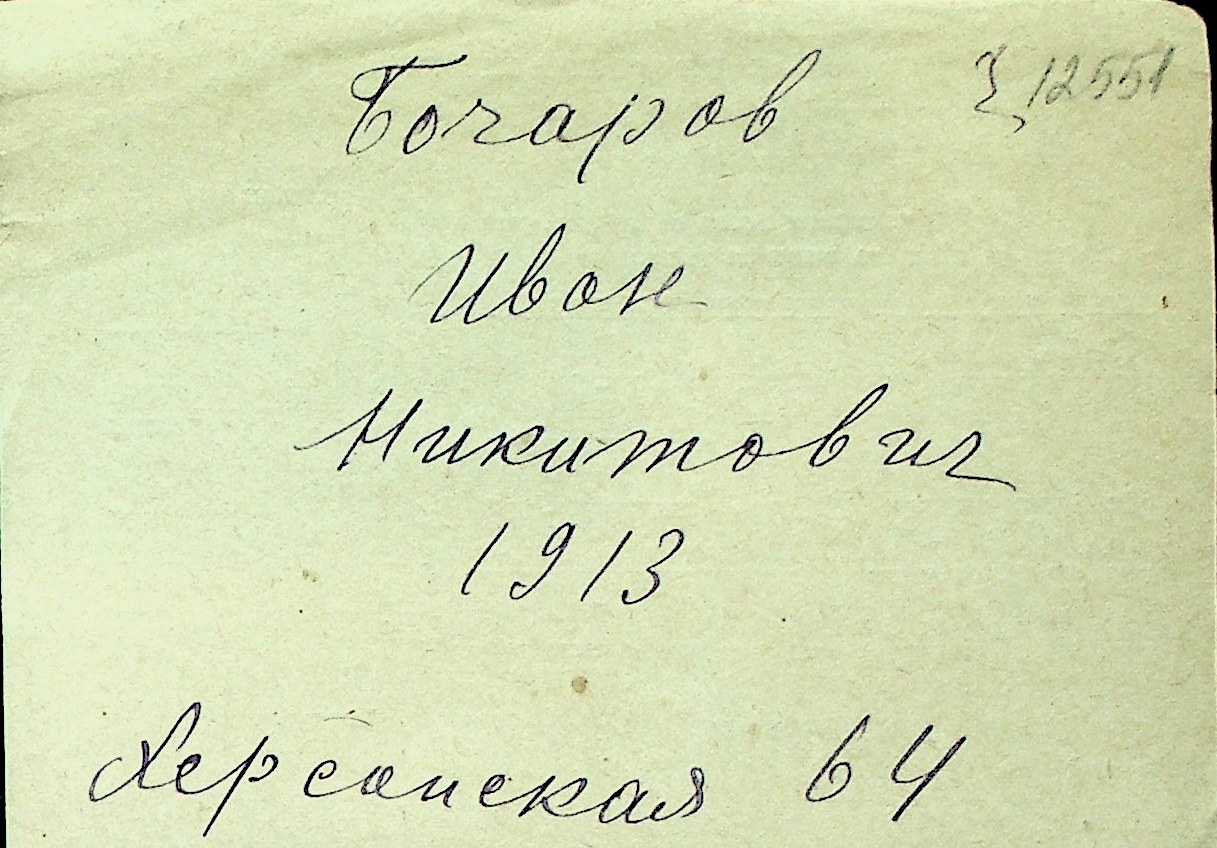 Бочаров 12551
Иван
Никитович
1913
Херсонская 64